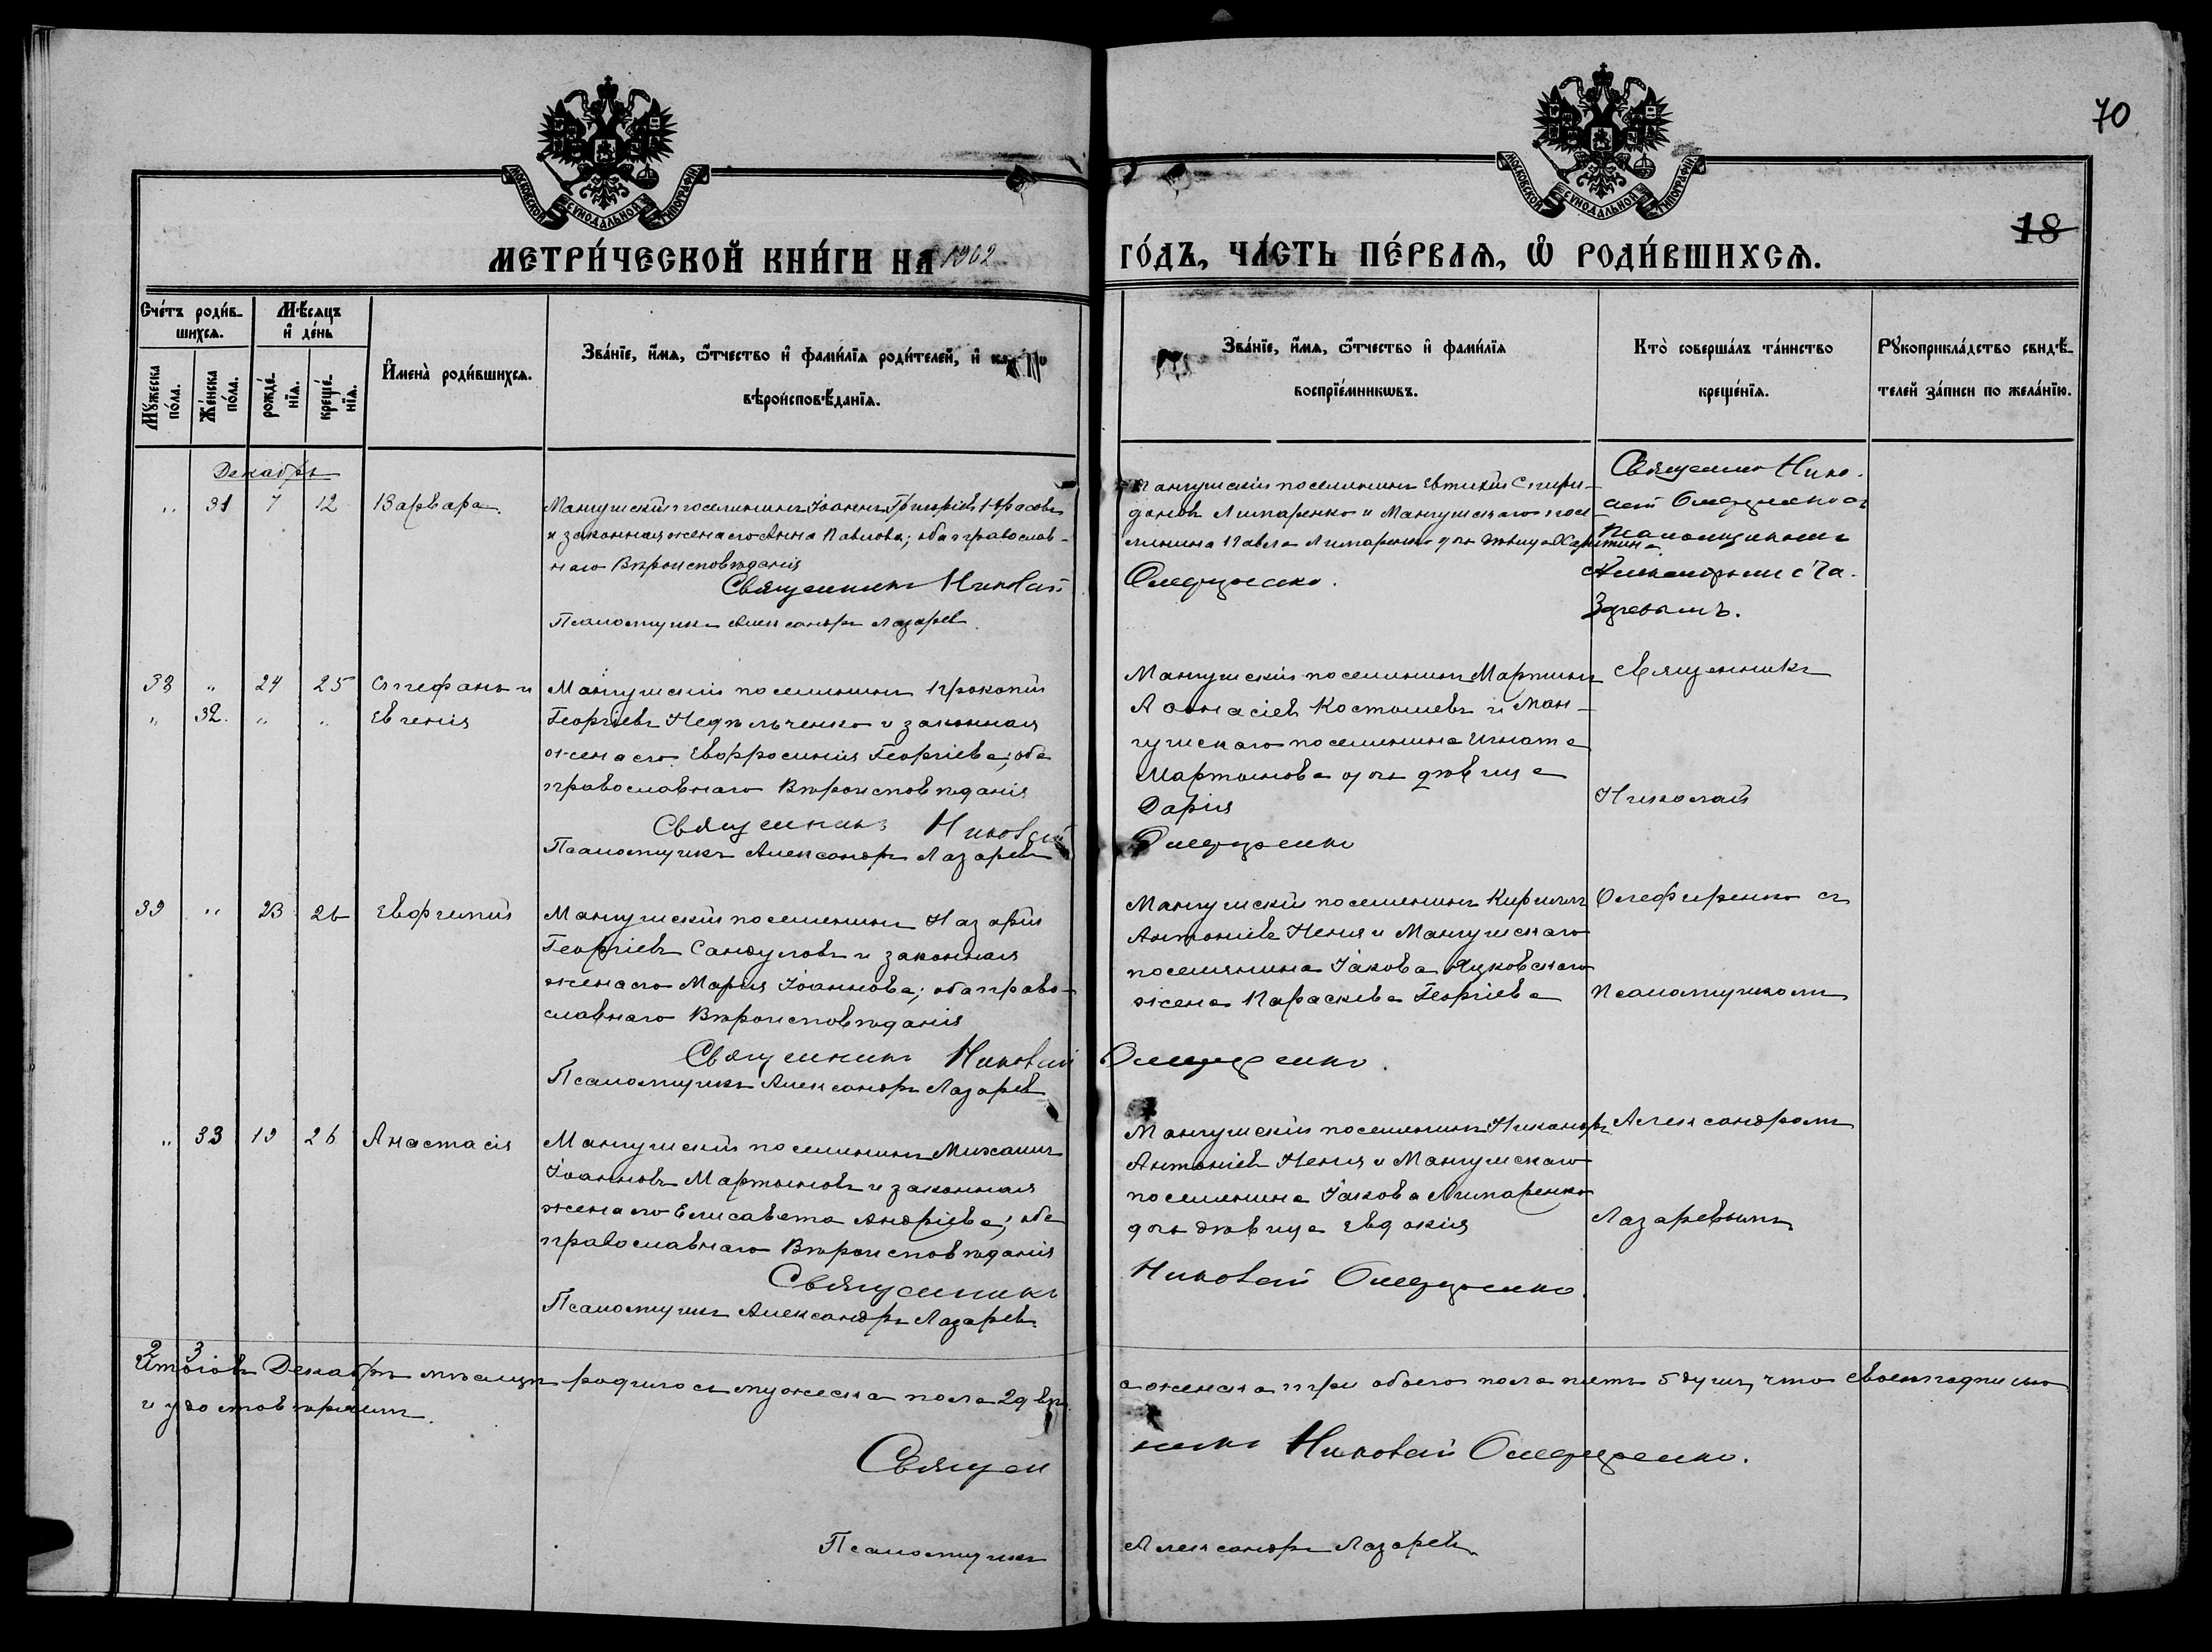 70
18
МОСКОВСКОЙ СѴНОДАЛЬНОЙ ТИПОГРАФІИ
МОСКОВСКОЙ СѴНОДАЛЬНОЙ ТИПОГРАФІИ
МЕТРИ́ЧЕСКОЙ КНИ́ГИ НА 1902 ГО́ДЪ, ЧА́СТЬ ПЕ́РВАѦ, Ѡ҆ РОДИ́ВШИХСѦ.
Сче́тъ роди́вшихсѧ.
Мꙋ́жеска по́ла.
Же́нска по́ла.
Мѣ́сѧцъ и҆ де́нь
рожде́нїѧ.
креще́нїѧ.
И҆мена̀ роди́вшихсѧ.
Зва́нїе, и҆́мѧ, ѻ҆́тчество и҆ фами́лїѧ роди́телей, и҆
вѣроисповѣ́данїѧ.
Зва́нїе, и҆́мѧ, ѻ҆́тчество и҆ фами́лїѧ
воспрїе́мникѡвъ.
Кто̀ соверша́лъ та́инство
креще́нїѧ.
Рꙋкоприкла́дство свидѣ́телей за́писи по жела́нїю.
Декабрь
„ 31 7 12 Варвара
Мангушскій поселянинъ Іоаннъ Григоріевъ
и законная жена его Анна Павлова; оба православ-
наго Вѣроисповѣданія
Священникъ Николай
Псаломщикъ Александръ Лазаревъ
Мангушскій поселянинъ Евтихій Спири-
доновъ Лимаренко и Мангушскаго посе-
лянина Павла Лимаренко дочь дѣвица Харитина
Олефиренко.
Священникъ Нико-
лай Олефиренко съ
Псаломщикомъ
Александромъ Ла-
заревымъ.
38 „ 24 25 Стефанъ и
„ 32. „ „ Евгенія
Мангушскій поселянинъ Прокопій
Георгіевъ Недѣльченко и законная
жена его Евфросинія Георгіева; оба
православнаго Вѣроисповѣданія
Священникъ Николай
Псаломщикъ Александръ Лазаревъ
Мангушскій поселянинъ Мартинъ
Аѳонасіевъ Костышевъ и Ман-
гушскаго поселянина Игната
Мартынова дочь дѣвица
Дарія
Олефиренко
Священникъ
Николай
39 „ 23 26 Евфимій
Мангушскій поселянинъ Назарій
Георгіевъ Сандуловъ и законная
жена его Марія Іоаннова; оба право-
славнаго Вѣроисповѣданія
Священникъ Николай
Псаломщикъ Александръ Лазаревъ
Мангушскій поселянинъ Кириллъ
Антоніевъ Неня и Мангушскаго
поселянина Іакова Яцковскаго
жена Параскева Георгіева
Олефиренко.
Олефиренко съ
Псаломщикомъ
„ 33 19 26 Анастасія
Мангушскій поселянинъ Михаилъ
Іоанновъ Мартыновъ и законная
жена его Елисавета Андріева; оба
православнаго Вѣроисповѣданія
Священникъ
Псаломщикъ Александръ Лазаревъ.
Мангушскій поселянинъ Никаноръ
Антоніевъ Неня и Мангушскаго
поселянина Іакова Лимаренко
дочь дѣвица Евдокія
Николай Олефиренко.
Александромъ
Лазаревымъ
2 3
Итого въ Декабрѣ мѣсяцѣ родилось мужеска пола 2 два
а женска три обоего пола пять 5 душъ, что своеподписью
и удостовѣряемъ.
Священникъ Николай Олефиренко.
Псаломщикъ Александръ Лазаревъ